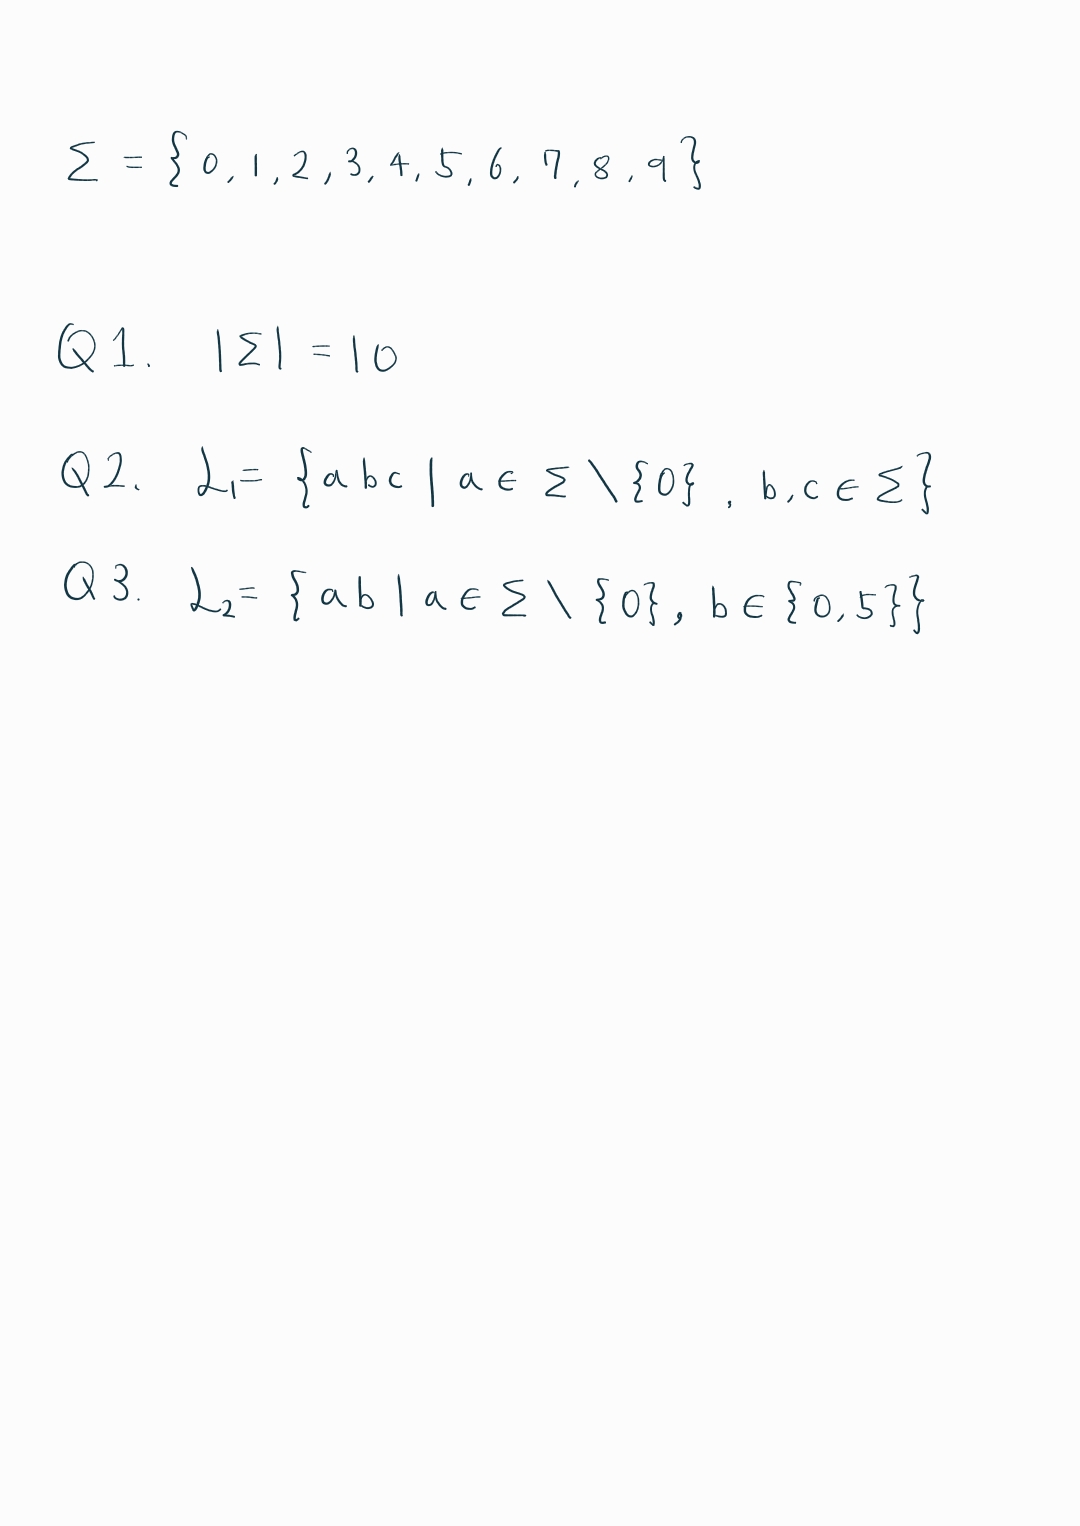 Σ = {0,1,2,3,4,5,6,7,8,9}
Q1. |Σ| = 10
Q2. L₁= {abc | a ∈ Σ \ {0}, b,c ∈ Σ}
Q3. L₂= {ab | a ∈ Σ \ {0}, b ∈ {0,5}}